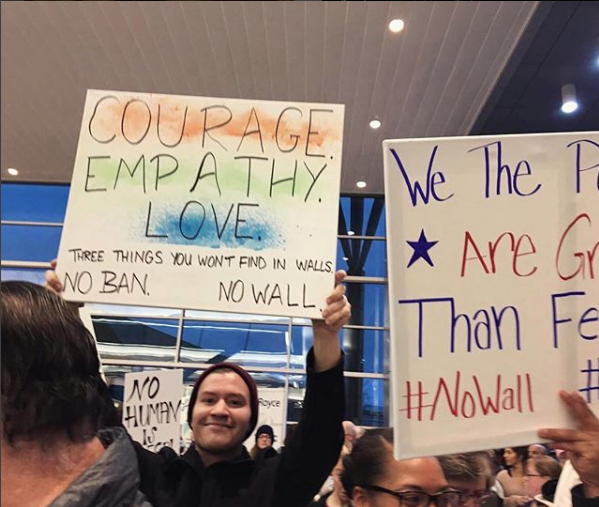 COURAGE.
EMPATHY.
LOVE.
THREE THINGS YOU WON'T FIND IN WALLS.
NO BAN. NO WALL.
We The
★ Are
Than
#NoWall #
NO
HUMAN
IS
Royce